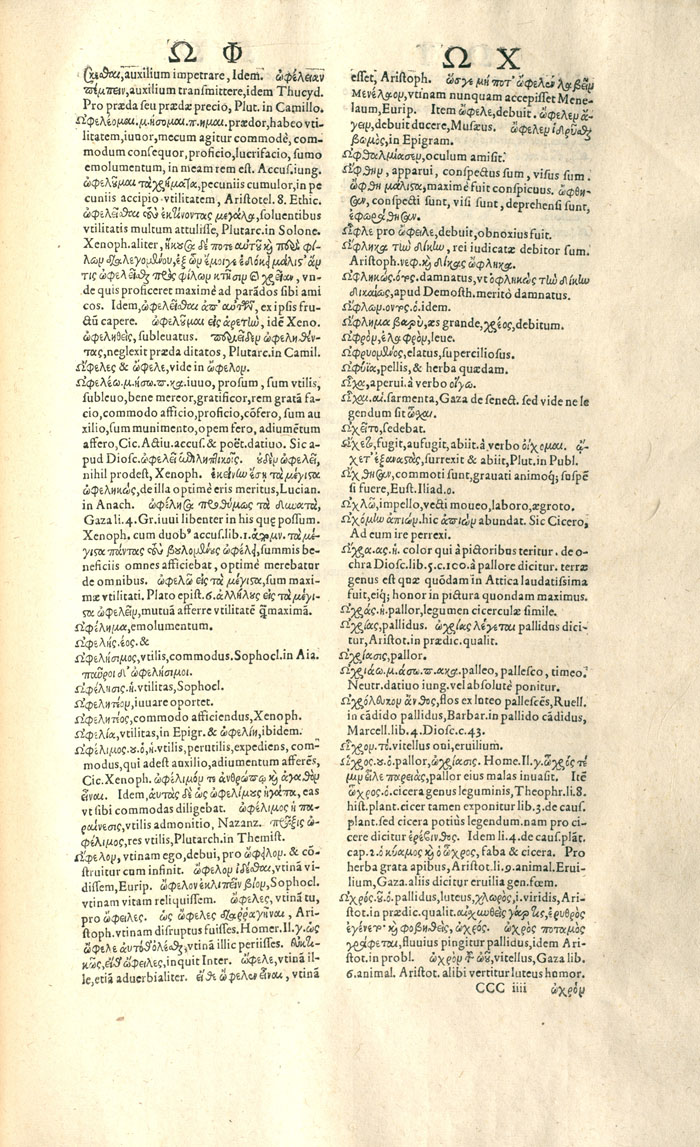 Ω Φ
σχέσθαι, auxilium impetrare, Idem. ὠφέλειαν
πέμπειν, auxilium transmittere, idem Thucyd.
Pro præda seu prædæ precio, Plut. in Camillo.
Ωφελέομαι. μ. ήσομαι. π. ημαι. prædor, habeo vti-
litatem, iuuor, mecum agitur commodè, com-
modum consequor, proficio, lucrifacio, sumo
emolumentum, in meam rem est. Accus. iung.
ὠφελοῦμαι τὰ χρήματα, pecuniis cumulor, in pe
cuniis accipio vtilitatem, Aristotel. 8. Ethic.
ὠφελεῖσθαι τοὺς ἐκτίνοντας μεγάλα, soluentibus
vtilitatis multum attulisse, Plutarc. in Solone.
Xenoph. aliter, ἤκουσα δέ ποτε αὐτοῦ καὶ περὶ φί-
λων διαλεγομένου, ἐξ ὧν ἔμοιγε ἐδόκει μάλιστ' ἄν
τις ὠφελεῖσθαι πρὸς φίλων κτῆσιν καὶ χρείαν, vn-
de quis proficeret maximè ad parãdos sibi ami
cos. Idem, ὠφελεῖσθαι ἀπ' αὐτῶν, ex ipsis fru-
ctũ capere. ὠφελοῦμαι εἰς ἀρετὴν, idẽ Xeno.
ὠφεληθεὶς, subleuatus. ὠφεληθέν-
τας, neglexit præda ditatos, Plutarc. in Camil.
Ωφελες & ὤφελε, vide in ὤφελον.
Ωφελέω. μ. ήσω. π. κα. iuuo, prosum, sum vtilis,
subleuo, bene mereor, gratificor, rem gratã fa-
cio, commodo afficio, proficio, cõfero, sum au
xilio, sum munimento, opem fero, adiumẽtum
affero, Cic. Actiu. accus. & poët. datiuo. Sic a-
pud Diosc. ὠφελεῖ. οὐδὲν ὠφελεῖ,
nihil prodest, Xenoph. ἐκεῖνον τὰ μέγιστα
ὠφεληκώς, de illa optimè eris meritus, Lucian.
in Anach. ὠφέλησα προθύμως τὰ δυνατὰ,
Gaza li. 4. Gr. iuui libenter in his quę possum.
Xenoph. cum duob⁹ accus. lib. 1. τὰ μέ-
γιστα πάντας τοὺς βουλομένους ὠφέλει, summis be-
neficiis omnes afficiebat, optimè merebatur
de omnibus. ὠφελῶ εἰς τὰ μέγιστα, sum maxi-
mæ vtilitati. Plato epist. 6. ἀλλήλους εἰς τὰ μέγι-
στα ὠφελεῖν, mutuã afferre vtilitatẽ quàm maximã.
Ωφέλημα, emolumentum.
Ωφελής. έος. &
Ωφελήσιμος, vtilis, commodus. Sophocl. in Aia.
παῦροι δ' ὠφελήσιμοι.
Ωφέλησις. ἡ. vtilitas, Sophocl.
Ωφελητέον, iuuare oportet.
Ωφελητέος, commodo afficiendus, Xenoph.
Ωφελία, vtilitas, in Epigr. & ὠφελίη, ibidem.
Ωφέλιμος. ου. ὁ, ἡ. vtilis, perutilis, expediens, com-
modus, qui adest auxilio, adiumentum afferẽs,
Cic. Xenoph. ὠφέλιμόν τε ἀνθρώπῳ καὶ ἀγαθὸν
εἶναι. Idem, αὐτὰς δὲ ὡς ὠφελίμους ἠγάπα, eas
vt sibi commodas diligebat. ὠφέλιμος ἡ πα-
ραίνεσις, vtilis admonitio, Nazanz. πρᾶξις ὠ-
φέλιμος, res vtilis, Plutarch. in Themist.
Ωφελον, vtinam ego, debui, pro ὤφειλον. & cõ-
struitur cum infinit. ὤφελον ἰδέσθαι, vtinã vi-
dissem, Eurip. ὤφελον ἐκλιπεῖν βίον, Sophocl.
vtinam vitam reliquissem. ὤφελες, vtinã tu,
pro ὤφειλες. ὡς ὤφελες διαρραγῆναι, Ari-
stoph. vtinam disruptus fuisses. Homer. Il. γ. ὡς
ὤφελε αὐτόθ' ὀλέσθαι, vtinã illic periisses.
εἴθ' ὤφειλες, inquit Inter. ὤφελε, vtinã il-
le, etiã aduerbialiter. εἴθε ὤφελεν εἶναι, vtinã
Ω Χ
esset, Aristoph. ὥστε μή ποτ' ὤφελεν λαβεῖν
Μενέλαον, vtinam nunquam accepisset Mene-
laum, Eurip. Item ὤφελε, debuit. ὤφελεν ἄ-
γειν, debuit ducere, Musæus. ὤφελεν ἱδρῦσθαι
βωμὸς, in Epigram.
Ωφθαλμίασεν, oculum amisit.
Ωφθην, apparui, conspectus sum, visus sum.
ὤφθη μάλιστα, maximè fuit conspicuus. ὤφθη-
σαν, conspecti sunt, visi sunt, deprehensi sunt,
ἐφωράθησαν.
Ωφλε pro ὤφειλε, debuit, obnoxius fuit.
Ωφληκα τὴν δίκην, rei iudicatæ debitor sum.
Aristoph. νεφ. καὶ δίκας ὤφληκα.
Ωφληκώς. ότος. damnatus, vt ὀφληκὼς τὴν δίκην
δικαίως, apud Demosth. meritò damnatus.
Ωφλων. οντος. ὁ. idem.
Ωφλημα βαρὺ, æs grande, χρέος, debitum.
Ωφρὸν, ἐλαφρὸν, leue.
Ωφρυομένος, elatus, superciliosus.
Ωφυῖα, pellis, & herba quædam.
Ωχα, aperui. à verbo οἴγω.
Ωχαι. αἱ. sarmenta, Gaza de senect. sed vide ne le
gendum sit ὦχαι.
Ωχεῖτο, sedebat.
Ωχετο, fugit, aufugit, abiit. à verbo οἴχομαι. ὤ-
χετ' ἐξαναστὰς, surrexit & abiit, Plut. in Publ.
Ωχθησαν, commoti sunt, grauati animoq; suspẽ
si fuere, Eust. Iliad. ο.
Ωχλῶ, impello, vecti moueo, laboro, ægroto.
Ωχόμην ἀπιών. hic ἀπιὼν abundat. Sic Cicero,
Ad eum ire perrexi.
Ωχρα. ας. ἡ. color qui à pictoribus teritur. de o-
chra Diosc. lib. 5. c. 100. à pallore dicitur. terræ
genus est quæ quõdam in Attica laudatissima
fuit, eiq; honor in pictura quondam maximus.
Ωχρὰς. ἡ. pallor, legumen cicerculæ simile.
Ωχρίας, pallidus. ὠχρίας λέγεται pallidus dici-
tur, Aristot. in prædic. qualit.
Ωχρίασις, pallor.
Ωχριάω. μ. άσω. π. ακα. palleo, pallesco, timeo.
Neutr. datiuo iung. vel absolutè ponitur.
Ωχρόλευκον ἄνθος, flos ex luteo pallescẽs, Ruell.
in cãdido pallidus, Barbar. in pallido cãdidus,
Marcell. lib. 4. Diosc. c. 43.
Ωχρον. τό. vitellus oui, eruilium.
Ωχρος. ου. ὁ. pallor, ὠχρίασις. Home. Il. γ. ὦχρός τέ
μιν εἷλε παρειάς, pallor eius malas inuasit. Itẽ
ὦχρος. ὁ. cicera genus leguminis, Theophr. li. 8.
hist. plant. cicer tamen exponitur lib. 3. de caus.
plant. sed cicera potiùs legendum. nam pro ci-
cere dicitur ἐρέβινθος. Idem li. 4. de caus. plãt.
cap. 2. ὁ κύαμος καὶ ὁ ὦχρος, faba & cicera. Pro
herba grata apibus, Aristot. li. 9. animal. Erui-
lium, Gaza. aliis dicitur eruilia gen. fœm.
Ωχρός. οῦ. ὁ. pallidus, luteus, χλωρὸς, i. viridis, Ari-
stot. in prædic. qualit. αἰσχυνθεὶς γάρ τις, ἐρυθρὸς
ἐγένετο καὶ φοβηθεὶς, ὠχρός. ὠχρὸς ποταμὸς
γράφεται, fluuius pingitur pallidus, idem Ari-
stot. in probl. ὠχρὸν τοῦ ὠοῦ, vitellus, Gaza lib.
6. animal. Aristot. alibi vertitur luteus humor.
CCC iiii ὠχρὸν